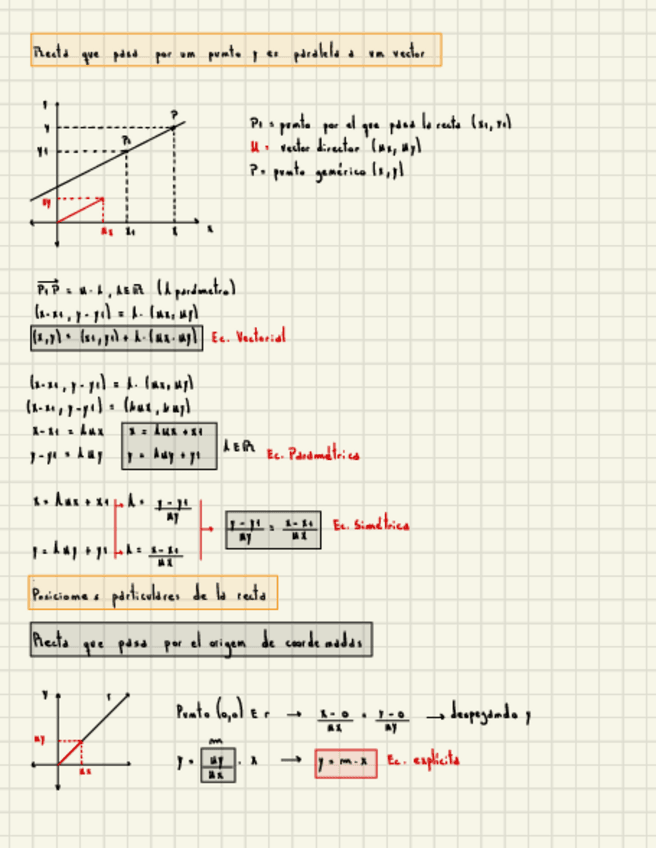 Recta que pasa por un punto y es paralela a un vector
y
y
y1
uy
P1
P
ux
x1
x
x
P1 = punto por el que pasa la recta (x1, y1)
u = vector director (ux, uy)
P = punto genérico (x, y)
P1P = u · λ , λ ∈ ℝ (λ parámetro)
(x-x1, y-y1) = λ · (ux, uy)
(x,y) = (x1, y1) + λ · (ux · uy) Ec. Vectorial
(x-x1, y-y1) = λ · (ux, uy)
(x-x1, y-y1) = (λux, λuy)
x-x1 = λux x = λux + x1
y-y1 = λuy y = λuy + y1 λ ∈ ℝ Ec. Paramétrica
x = λux + x1 → λ = y-y1 / uy
y = λuy + y1 → λ = x-x1 / ux → y-y1 / uy = x-x1 / ux Ec. Simétrica
Posiciones particulares de la recta
Recta que pasa por el origen de coordenadas
y
r
uy
ux
Punto (0,0) ∈ r → x-0 / ux = y-0 / uy → despejando y
m
y = uy / ux · x → y = m · x Ec. explícita